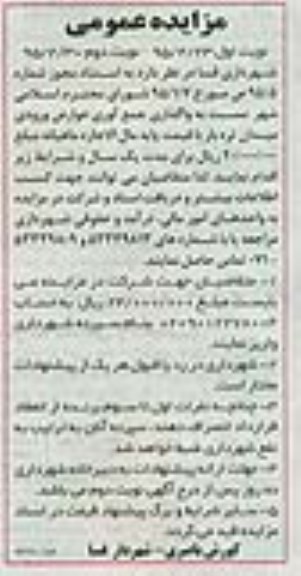 مزایده عمومی
نوبت اول ۹۵/۲/۲۳ نوبت دوم ۹۵/۲/۳۰
شهرداری فسا در نظر دارد به استناد مجوز شماره
۹۵/۵ مورخ ۹۵/۱/۲ شورای محترم اسلامی
شهر نسبت به واگذاری جمع آوری عوارض ورودی
میدان تره بار با قیمت پایه مال الاجاره ماهیانه مبلغ
ریال برای مدت یک سال و شرایط زیر
اقدام نماید. لذا متقاضیان می توانند جهت کسب
اطلاعات بیشتر و دریافت اسناد و شرکت در مزایده
به واحدهای امور مالی، درآمد و حقوقی شهرداری
مراجعه یا با شماره های ۵۳۳۳۹۸۱۳ و ۵۳۳۳۹۸۰۹
۰۷۱ تماس حاصل نمایند.
۱- متقاضیان جهت شرکت در مزایده می
بایست مبلغ ریال به حساب
بنام سپرده شهرداری
واریز نمایند.
۲- شهرداری در رد یا قبول هر یک از پیشنهادات
مختار است.
۳- چنانچه نفرات اول تا سوم برنده از انعقاد
قرارداد انصراف دهند، سپرده آنان به ترتیب به
نفع شهرداری ضبط خواهد شد.
۴- مهلت ارائه پیشنهادات به دبیرخانه شهرداری
ده روز پس از درج آگهی نوبت دوم می باشد.
۵- سایر شرایط و برگ پیشنهاد قیمت در اسناد
مزایده قید می گردد.
کورش ناصری - شهردار فسا